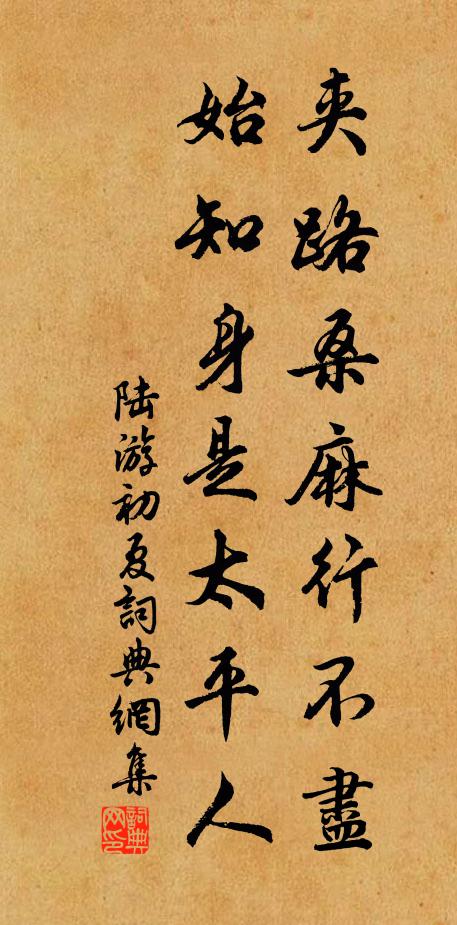 夹路桑麻行不盡
始知身是太平人
陸游初夏詞典網集
詞典網印